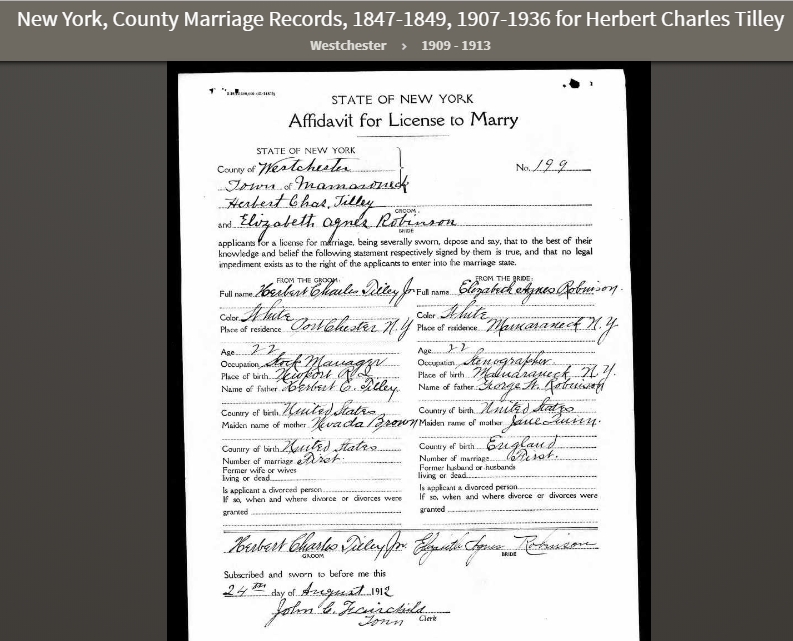 New York, County Marriage Records, 1847-1849, 1907-1936 for Herbert Charles Tilley
Westchester › 1909 - 1913
STATE OF NEW YORK
Affidavit for License to Marry
STATE OF NEW YORK
County of Westchester
No. 199
Town of Mamaroneck
Herbert Chas. Tilley
GROOM
and Elizabeth Agnes Robinson
BRIDE
applicants for a license for marriage, being severally sworn, depose and say, that to the best of their
knowledge and belief the following statement respectively signed by them is true, and that no legal
impediment exists as to the right of the applicants to enter into the marriage state.
FROM THE GROOM: FROM THE BRIDE:
Full name Herbert Charles Tilley Jr Full name Elizabeth Agnes Robinson.
Color White Color White
Place of residence Port Chester N.Y Place of residence Mamaroneck N.Y.
Age 22 Age 22
Occupation Stock Manager Occupation Stenographer
Place of birth Newport R.I. Place of birth Mamaroneck N.Y.
Name of father Herbert C. Tilley. Name of father George W. Robinson
Country of birth United States Country of birth United States
Maiden name of mother Nevada Brown Maiden name of mother Jane Quinn.
Country of birth United States Country of birth England
Number of marriage First. Number of marriage First.
Former wife or wives Former husband or husbands
living or dead living or dead
Is applicant a divorced person Is applicant a divorced person
If so, when and where divorce or divorces were If so, when and where divorce or divorces were
granted granted
Herbert Charles Tilley Jr. Elizabeth Agnes Robinson
GROOM BRIDE
Subscribed and sworn to before me this
24th day of August 1912
John C. Fairchild
Town Clerk